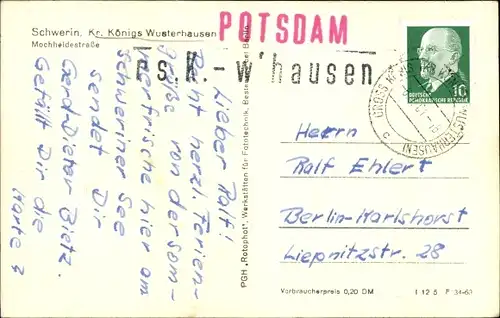 Schwerin, Kr. Königs Wusterhausen
Mochheidestraße
POTSDAM
P s. K.- w'hausen
10
DEUTSCHE
DEMOKRATISCHE REPUBLIK
GROSS KÖRIS
WUSTERHAUSEN)
Lieber Ralf!
Recht herzl. Ferien-
grüße von der som-
merfrische hier am
Schweriner See
sendet Dir
Gerd-Dieter Bietz.
Gefällt Dir die
Karte?
PGH „Rotophot", Werkstätten für Fototechnik, Bestensee bei Berlin
Herrn
Ralf Ehlert
Berlin-Karlshorst
Liepnitzstr. 28
Verbraucherpreis 0,20 DM
I 12 5 F 34-63